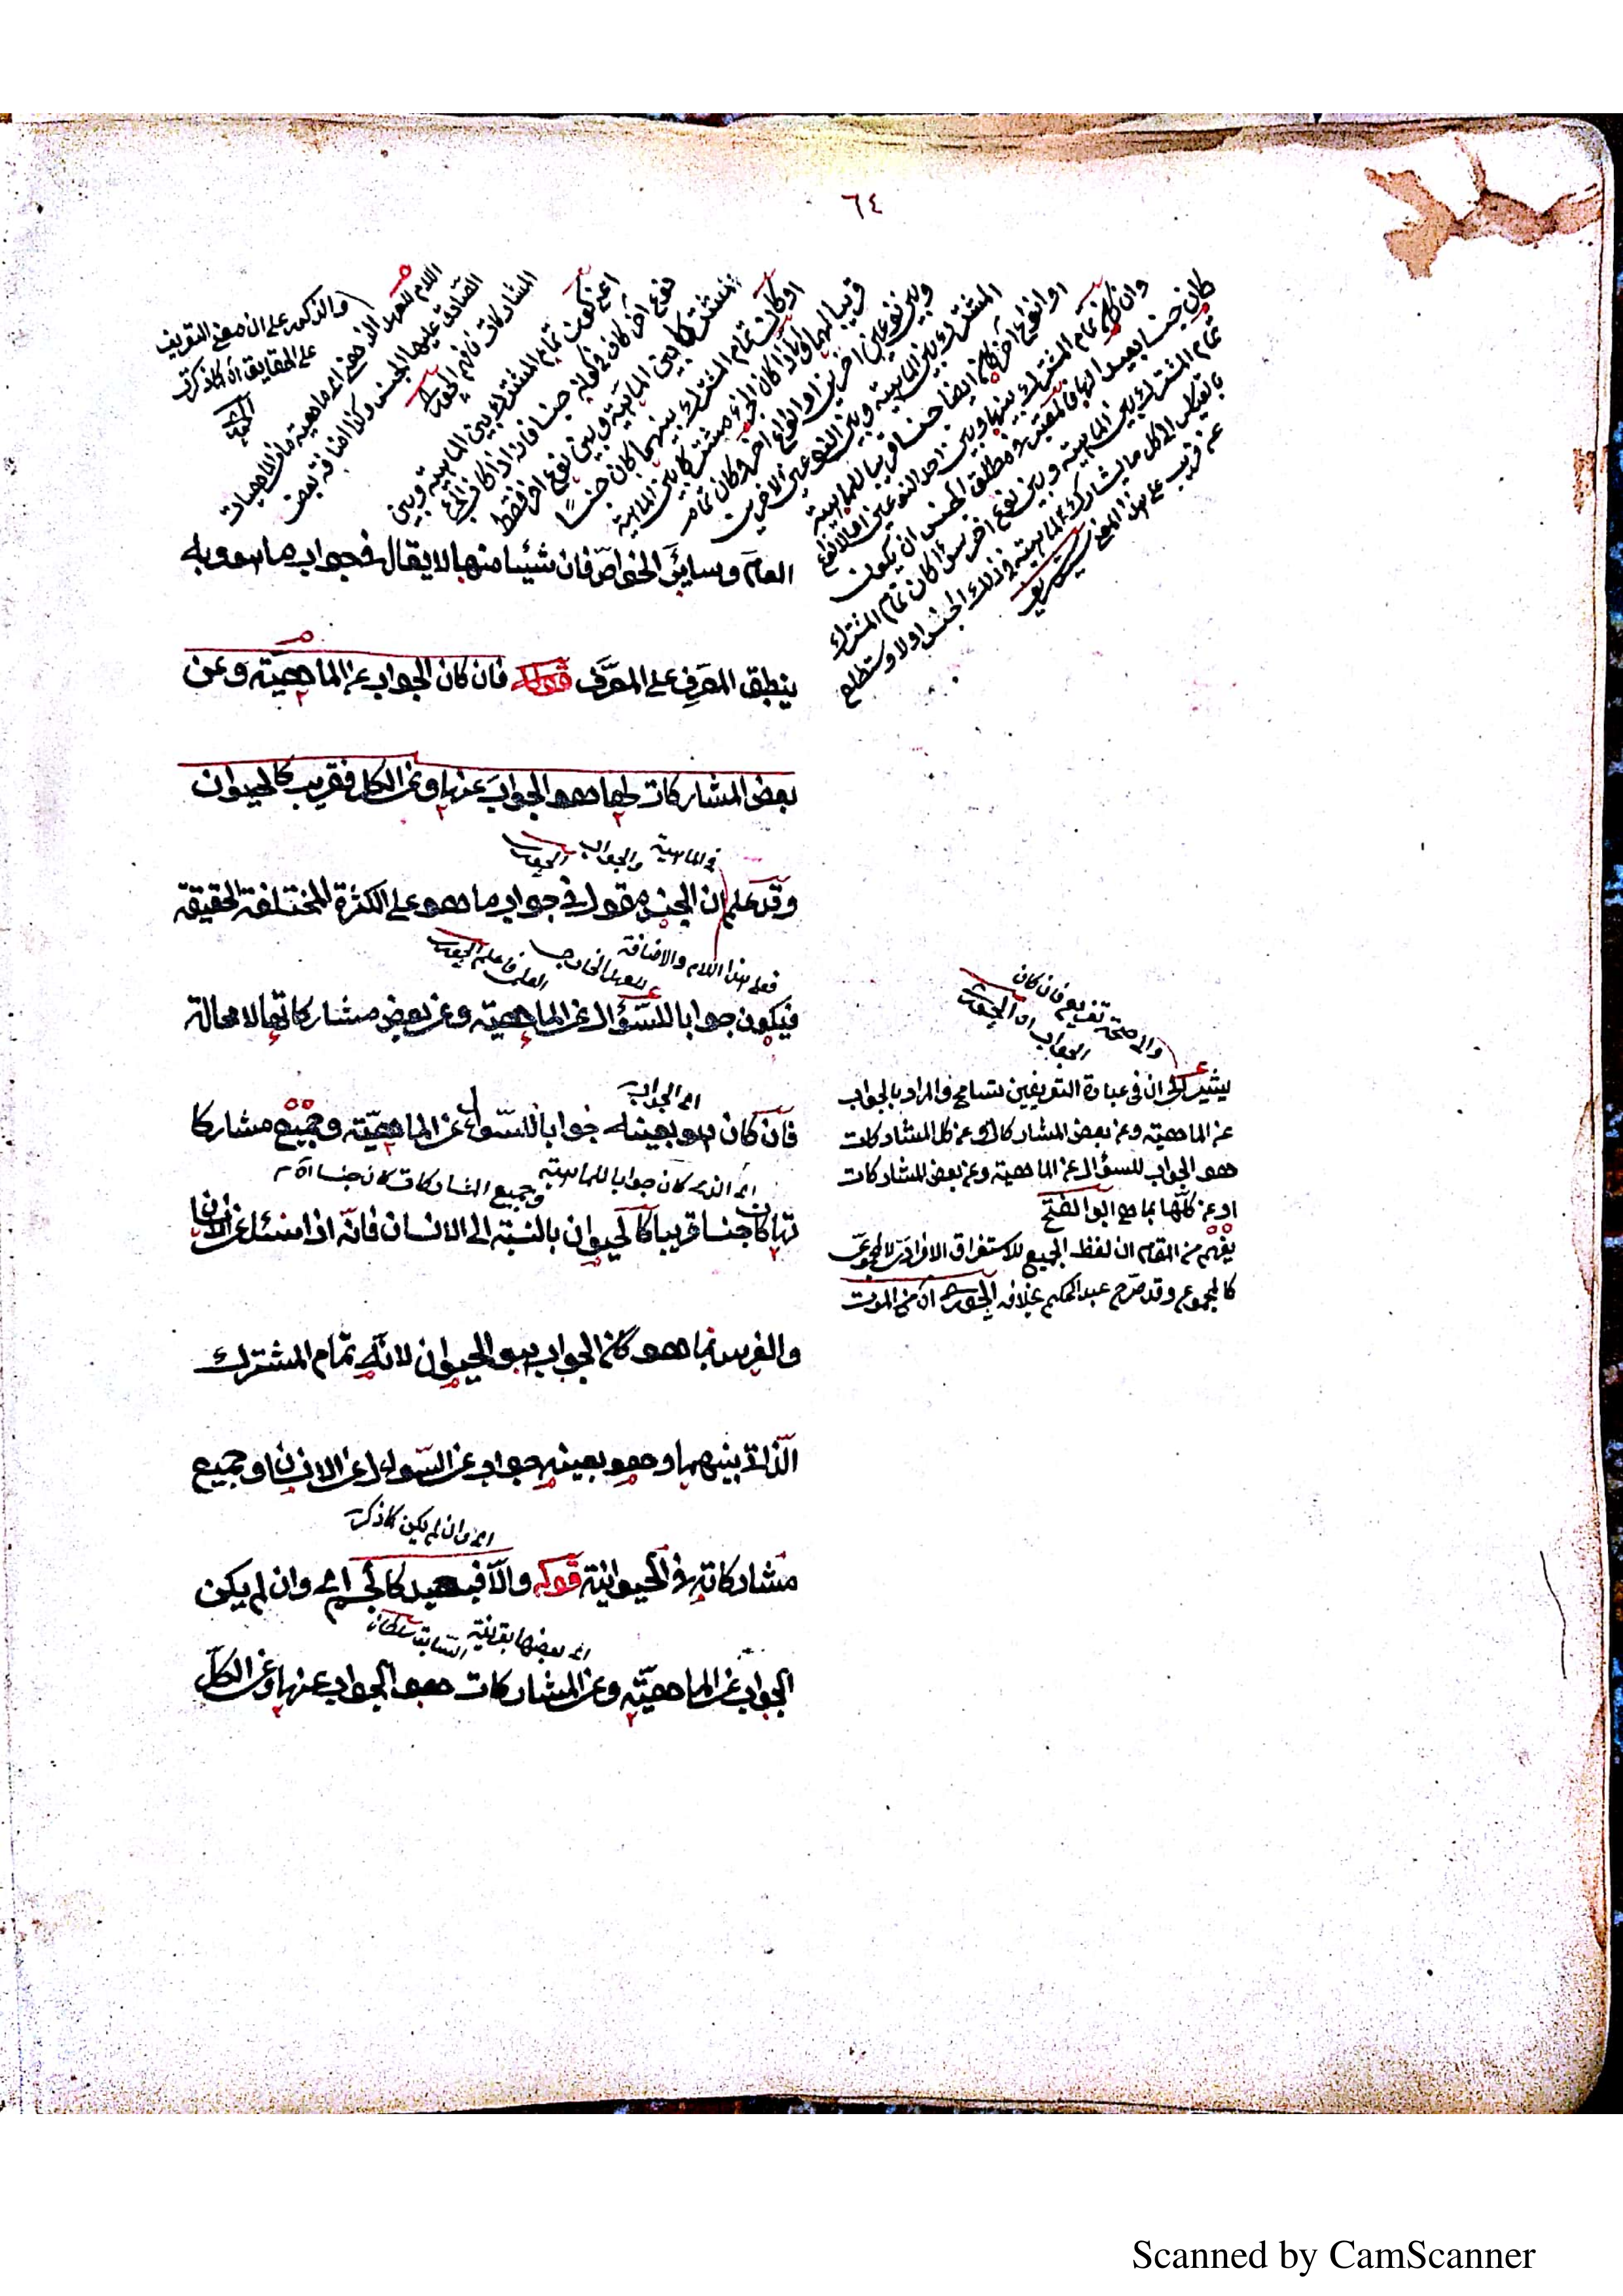 ٦٤
والذكر على ان معنى التعريف
على الحقايق
اللام للعهد الذهني اى ماهية من الماهيات
الصادق عليها الجنس وكذا اضافة بعض
المشاركات فافهم
اعنى كون تمام المشترك بين الماهية وبين
نوع آخر كان في كونه جنسا فانه اذا كان الجزء
مشتركا بين الماهية وبين نوع آخر فقط
او كان تمام المشترك بينهما كان جنسا
قريبا لها واذا كان الجزء مشتركا بين الماهية
وبين نوعين آخرين او انواع اخر وكان تمام
المشترك بين الماهية وبين النوعين الاخرين
او انواع اخر كان ايضا جنسا قريبا للماهية
وان كان تمام المشترك بينها وبين احد النوعين او الانواع
كان جنسا بعيدا لها فالمعتبر في مطلق الجنس ان يكون
تمام المشترك بين الماهية وبين نوع آخر سواء كان تمام المشترك
بالقياس الى كل ما يشارك الماهية في ذلك الجنس اولا وستطلع
عن قريب على هذا المعنى
العام وسائر الخواص فان شيئا منها لا يقال في جواب ما هو وبه
ينطبق المعرف على المعرف قوله فان كان الجواب عن الماهية وعن
بعض المشاركات لها هو الجواب عنها وعن الكل فقريب كالحيوان
في الماهية والجواب
وقد علم ان الجنس مقول في جواب ما هو على الكثرة المختلفة الحقيقة
فعلى هذا اللام والاضافة للعهد الخارجي
فيكون جوابا للسؤال عن الماهية وعن بعض مشاركاتها لا محالة
اى الجواب
فان كان هو بعينه جوابا للسؤال عن الماهية وجميع مشاركا
اى الذى كان جوابا للماهية وجميع المشاركات كان جنسا
تها كان جنسا قريبا كالحيوان بالنسبة الى الانسان فانه اذا سئل عن الانسان
والفرس بما هو كان الجواب هو الحيوان لانه تمام المشترك
الذاتي بينهما وهو بعينه جواب عن السؤال عن الانسان وجميع
اى وان لم يكن كما ذكر
مشاركاته في الحيوانية قوله والا فبعيد كالجسم اى وان لم يكن
اى بعضها بقرينة السابق
الجواب عن الماهية وعن المشاركات هو الجواب عنها وعن الكل
تفريع فان كان
الجواب
يشير الى ان في عبارة التعريفين تسامح والمراد بالجواب
عن الماهية وعن بعض المشاركات او عن كل المشاركات
هو الجواب للسؤال عن الماهية وعن بعض المشاركات
او عن كلها بما هي ابو الفتح
يفهم من المقام ان لفظ الجميع للاستغراق الافرادى لا المجموعى
كالمجموع وقد صرح عبد الحكيم بخلافه